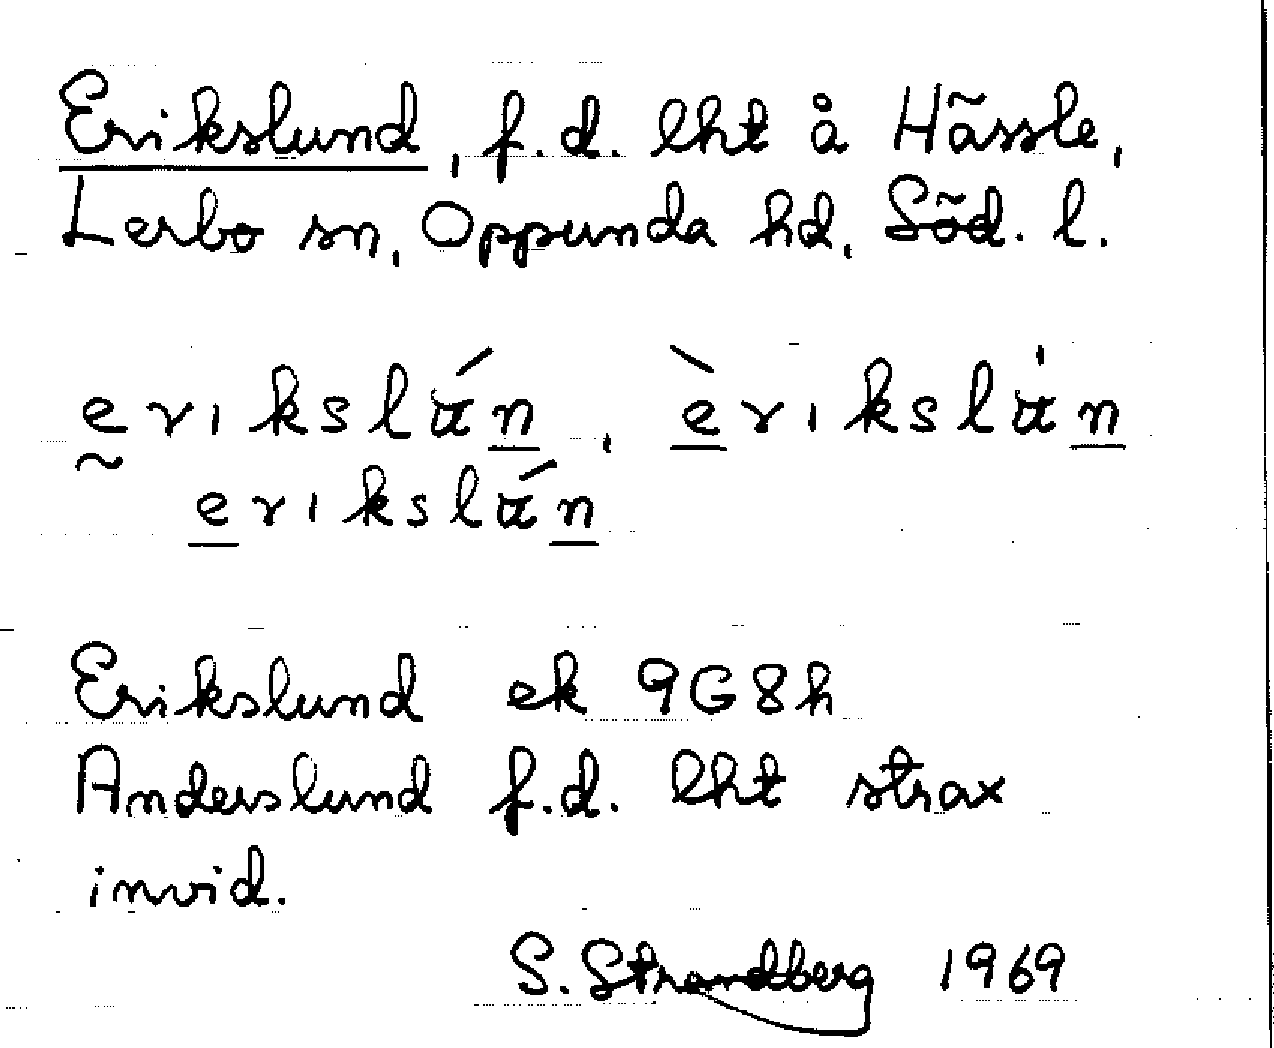 Erikslund, f.d. lht å Hässle,
Lerbo sn, Oppunda hd, Söd. l.
erikslán, èrikslán
erikslán
Erikslund ek 9G8h
Anderslund f.d. lht strax
invid.
S. Strandberg 1969